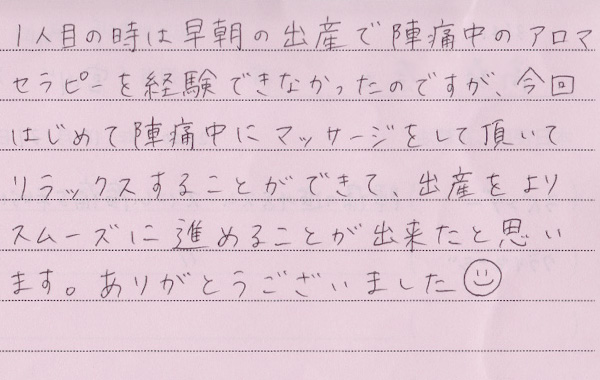 1人目の時は早朝の出産で陣痛中のアロマ
セラピーを経験できなかったのですが、今回
はじめて陣痛中にマッサージをして頂いて
リラックスすることができて、出産をより
スムーズに進めることが出来たと思い
ます。ありがとうございました☺